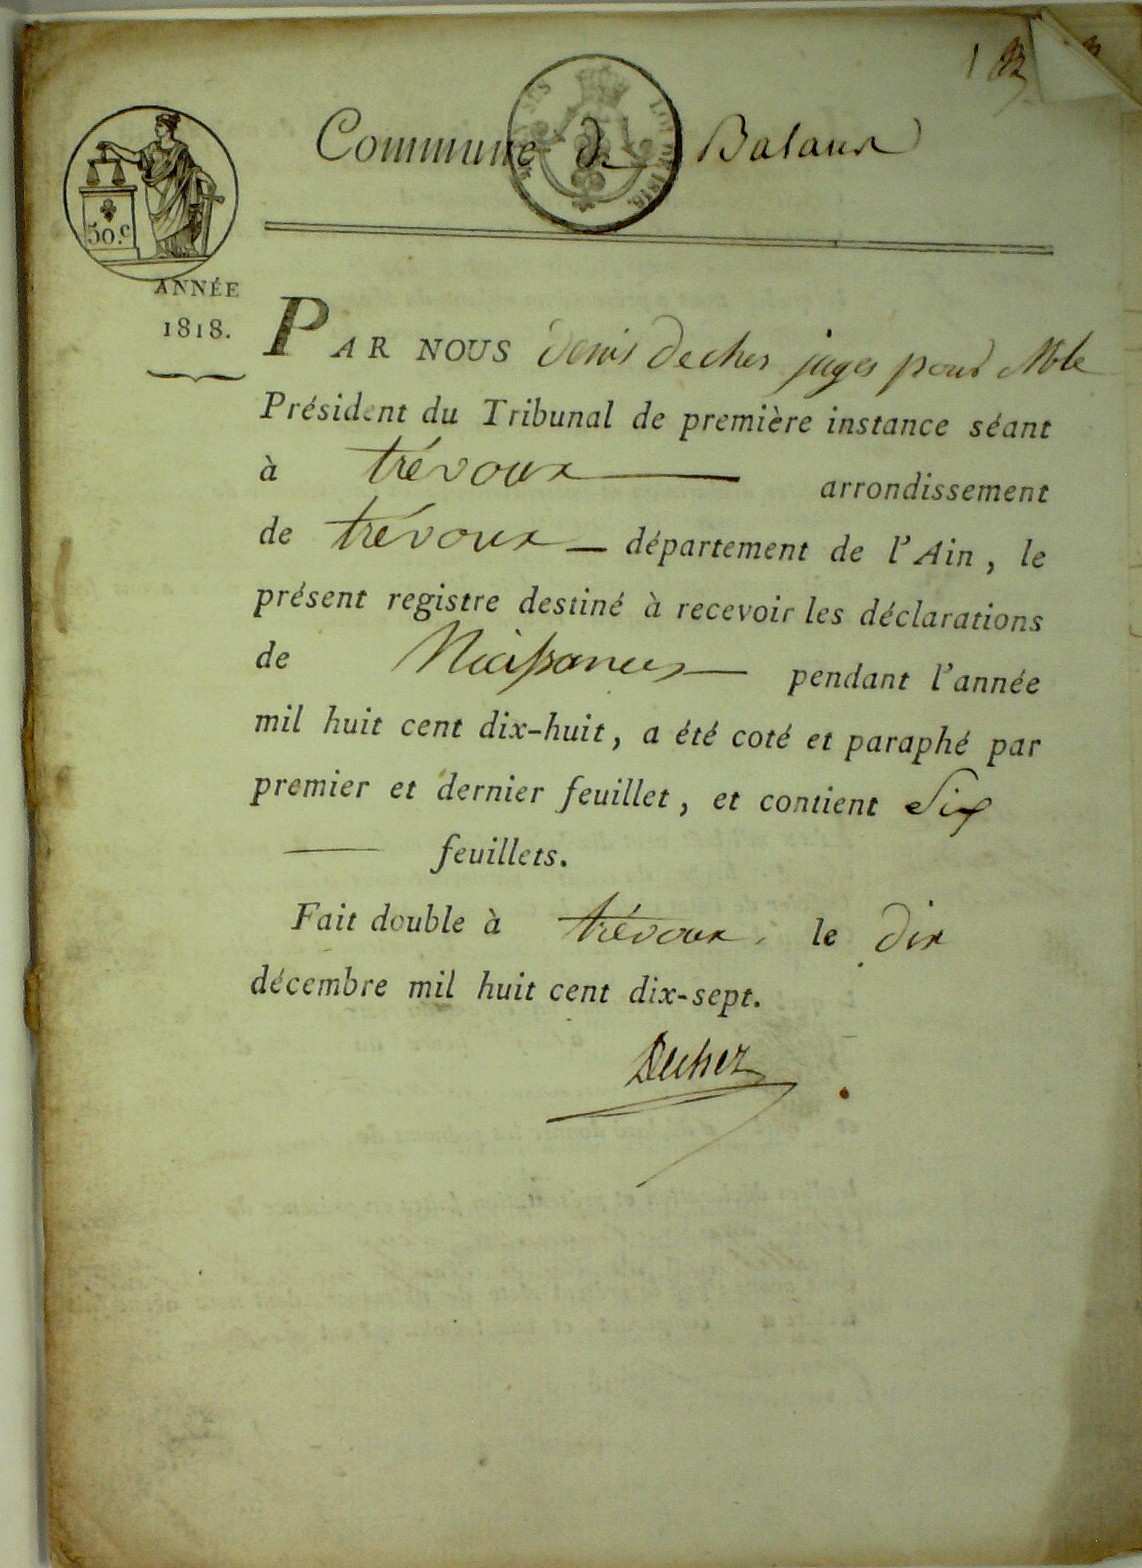 1
Commune de Balan
50 c.
ANNÉE
1818.
PAR NOUS Denis Dechez juge pour Mr le
Président du Tribunal de première instance séant
à trévoux arrondissement
de trévoux département de l'Ain, le
présent registre destiné à recevoir les déclarations
de Naissances pendant l'année
mil huit cent dix-huit, a été coté et paraphé par
premier et dernier feuillet, et contient Six
feuillets.
Fait double à trévoux, le dix
décembre mil huit cent dix-sept.
Dechez